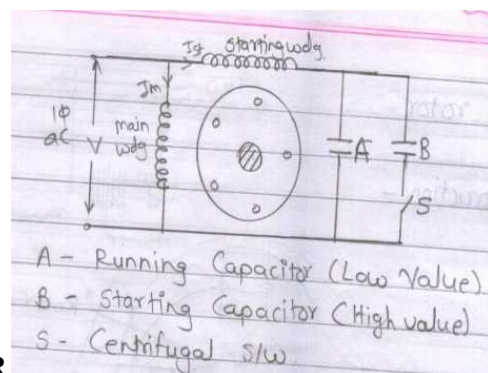 Ist Starting wdg.
Im
1Φ
ac V
main
wdg
A
B
S
A - Running Capacitor (Low Value)
B - Starting Capacitor (High value)
S - Centrifugal S/W